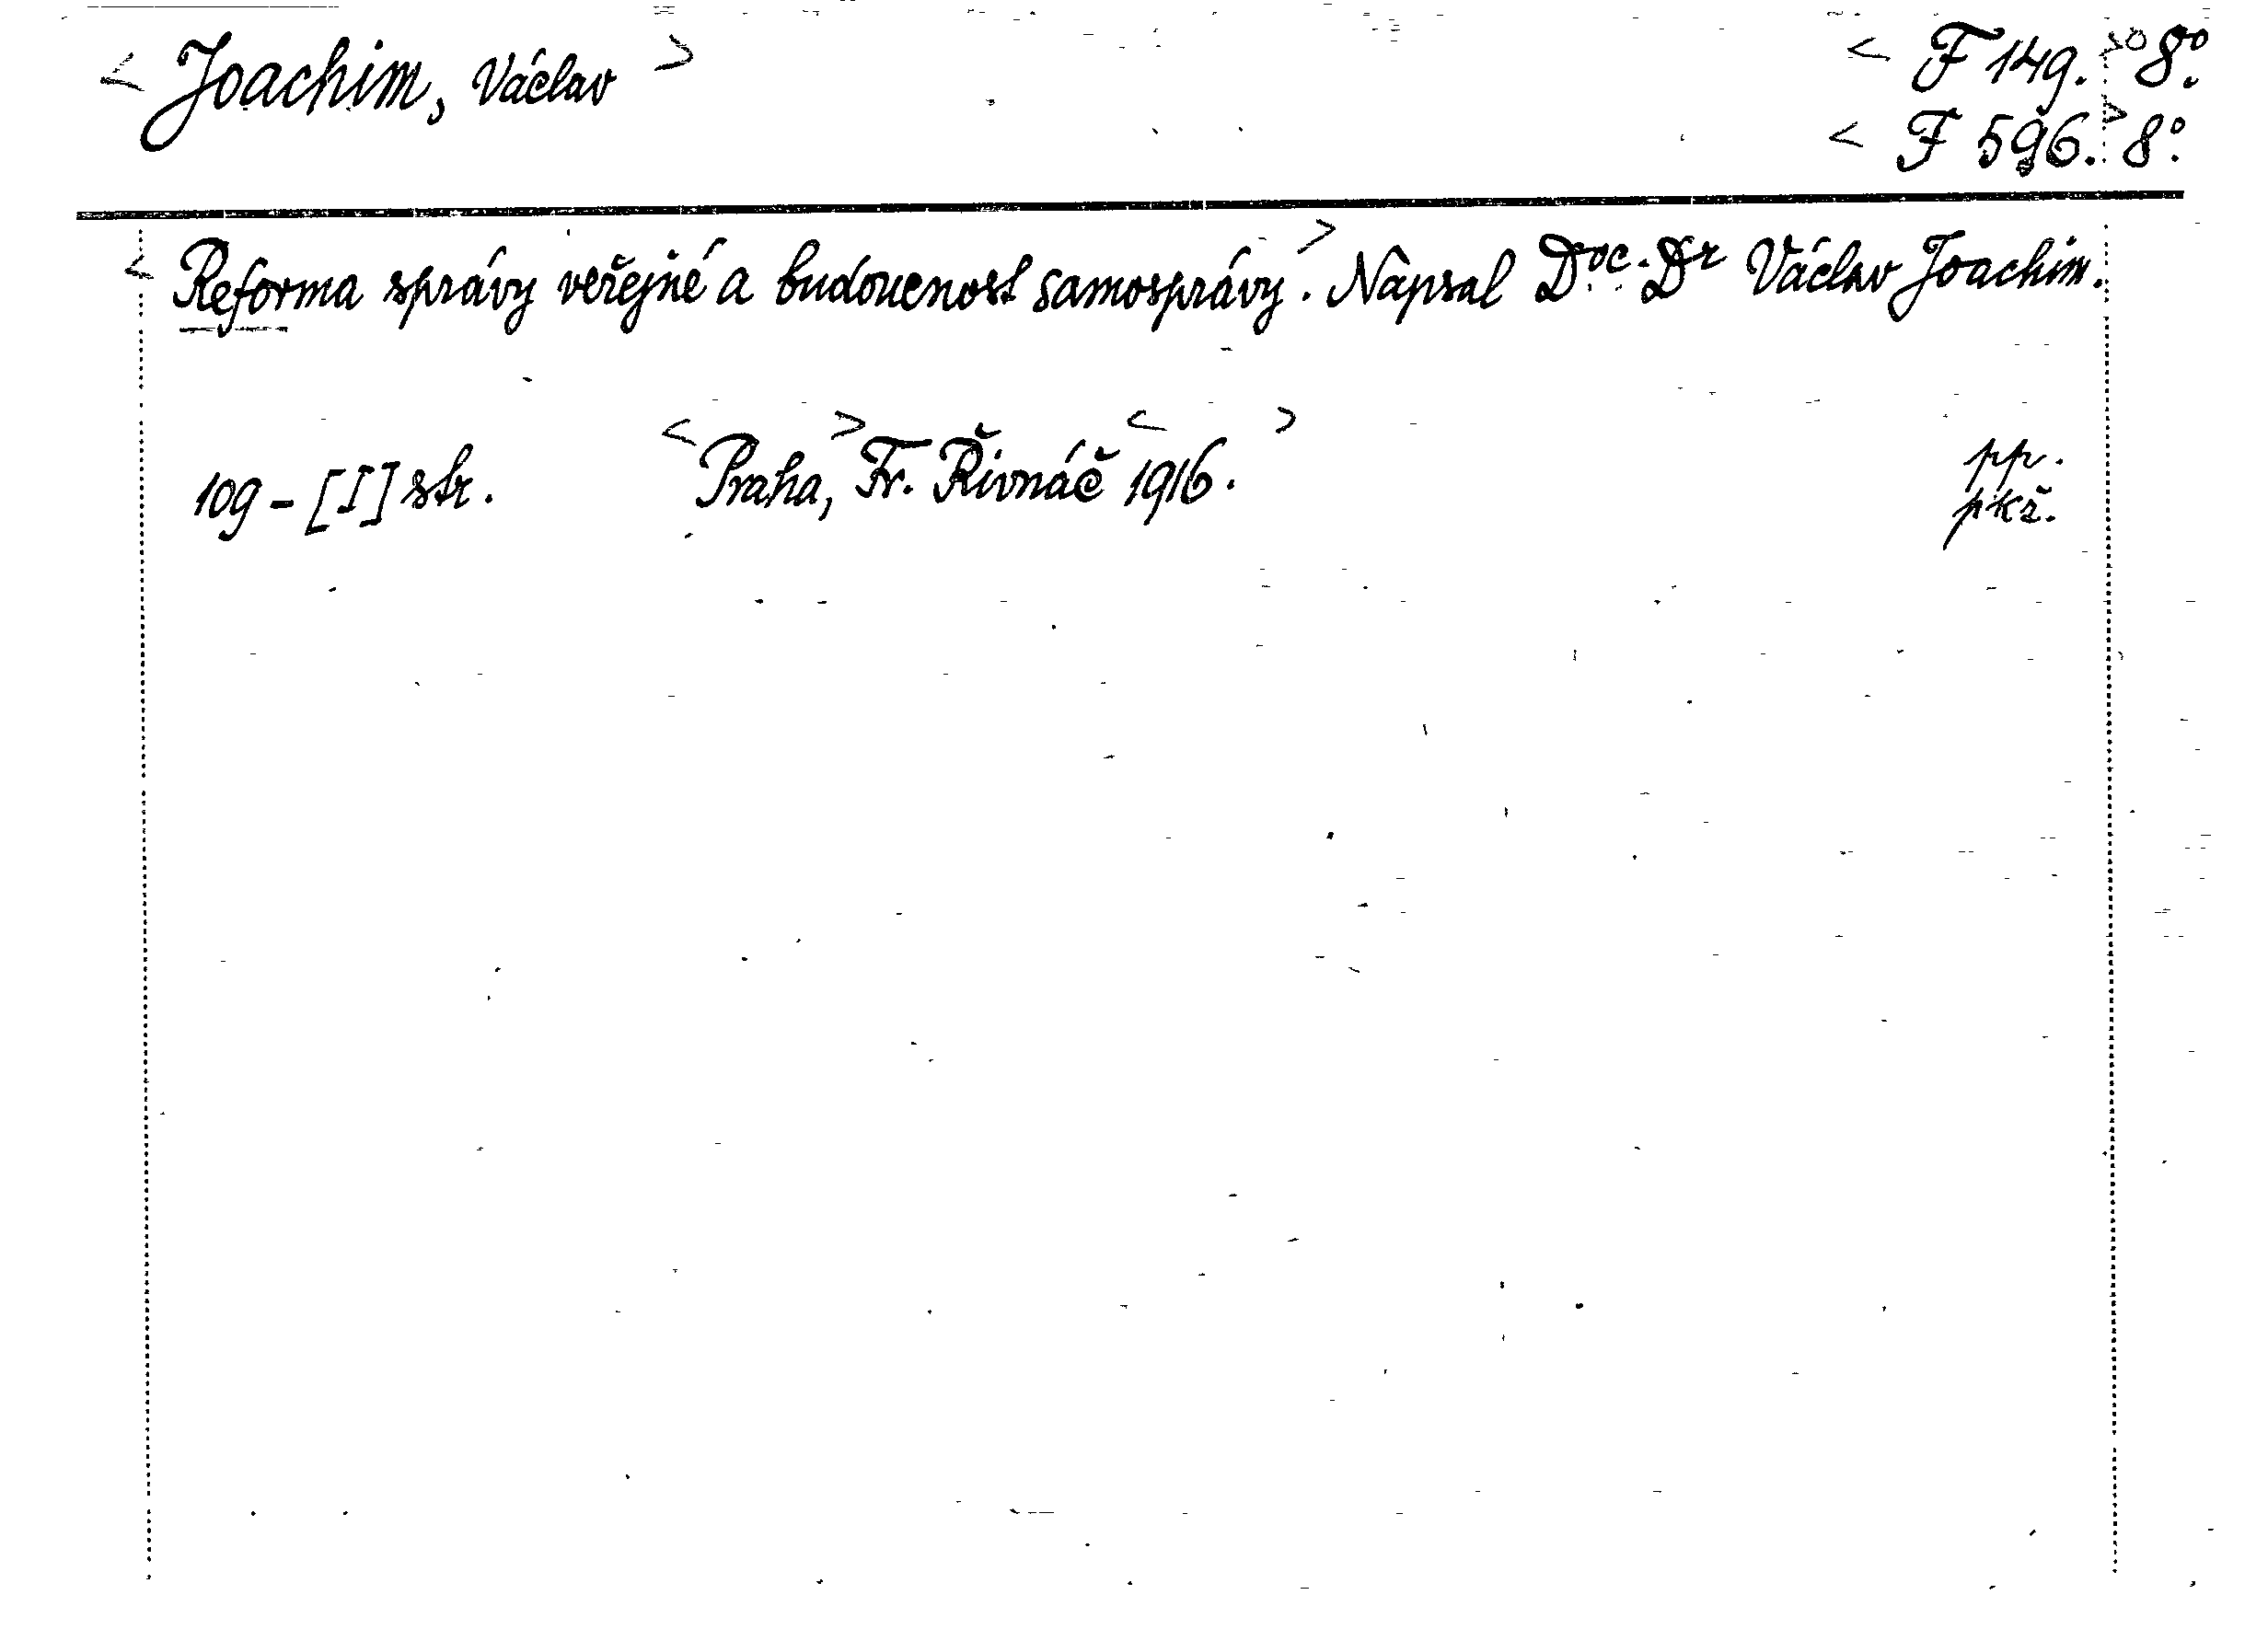 < Joachim, Václav > < F 149. > 8°.
< F 596. > 8°.
< Reforma správy veřejné a budoucnost samosprávy. > Napsal Doc. Dr Václav Joachim.
109 - [I] str. < Praha, > Fr. Řivnáč < 1916. > pp.
pkř.